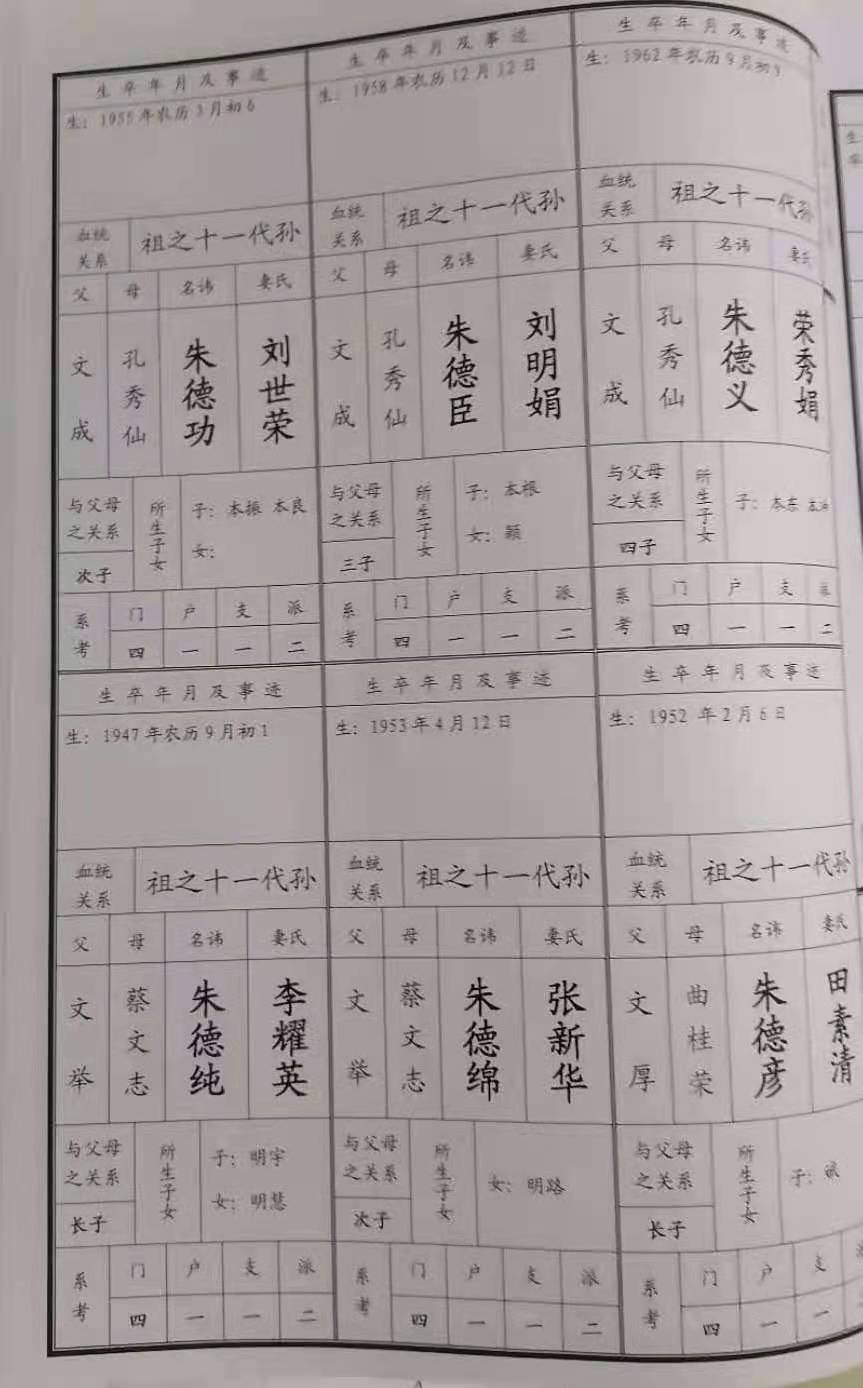 生卒年月及事迹
生：1955年农历3月初6
血统关系
祖之十一代孙
父 母 名讳 妻氏
文成 孔秀仙 朱德功 刘世荣
与父母之关系
次子
所生子女
子：本振 本良
女：
系考
门 户 支 派
四 一 一 二
生卒年月及事迹
生：1958年农历12月12日
血统关系
祖之十一代孙
父 母 名讳 妻氏
文成 孔秀仙 朱德臣 刘明娟
与父母之关系
三子
所生子女
子：本根
女：颖
系考
门 户 支 派
四 一 一 二
生卒年月及事迹
生：1962年农历9月初9
血统关系
祖之十一代孙
父 母 名讳 妻氏
文成 孔秀仙 朱德义 荣秀娟
与父母之关系
四子
所生子女
子：本东 本
系考
门 户 支 派
四 一 一 二
生卒年月及事迹
生：1947年农历9月初1
血统关系
祖之十一代孙
父 母 名讳 妻氏
文举 蔡文志 朱德纯 李耀英
与父母之关系
长子
所生子女
子：明宇
女：明慧
系考
门 户 支 派
四 一 一 二
生卒年月及事迹
生：1953年4月12日
血统关系
祖之十一代孙
父 母 名讳 妻氏
文举 蔡文志 朱德绵 张新华
与父母之关系
次子
所生子女
女：明路
系考
门 户 支 派
四 一 一 二
生卒年月及事迹
生：1952 年2月6日
血统关系
祖之十一代孙
父 母 名讳 妻氏
文厚 曲桂荣 朱德彦 田素清
与父母之关系
长子
所生子女
子：
系考
门 户 支
四 一 一
生
卒